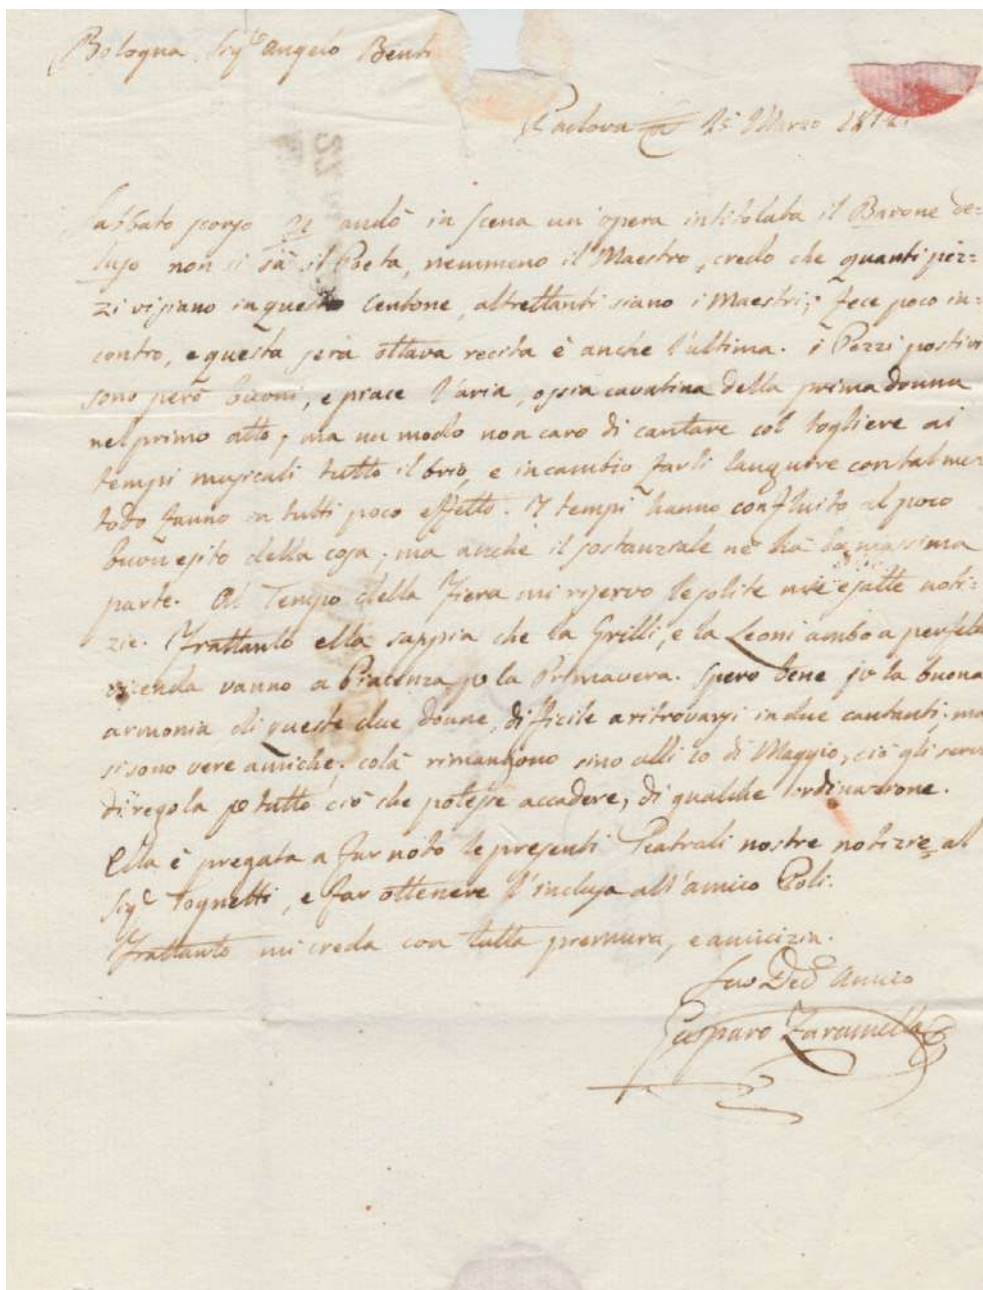 Bologna Sig.e Angelo Benti
Padova 25 Marzo
Sabbato scorso 21 andò in scena un'opera intitolata il Barone de=
luso non si sà il Poeta, nemmeno il Maestro, credo che quanti pez=
zi vi siano in questo Centone, altrettanti siano i Maestri; fece poco in=
contro, e questa sera ottava recita è anche l'ultima. i Pezzi postivi
sono però buoni, e piace l'aria, ossia cavatina della prima donna
nel primo atto, ma un modo non caro di cantare col togliere ai
tempi musicali tutto il brio, e incambio farli languire con tal me=
todo fanno in tutti poco effetto. I tempi hanno confluito al poco
buon esito della cosa; ma anche il sostanziale ne ha la massima
parte. Al Tempo della Fiera mi riservo le solite mie esatte noti=
zie. Frattanto ella sappia che la Grilli, e la Leoni ambo a perfetta
vicenda vanno a Piacenza p la Primavera. Spero bene p la buona
armonia di queste due donne, difficile a ritrovarsi in due cantanti; ma
si sono vere amiche; colà rimandono sino alli 20 di Maggio, ciò gli serva
di regola p tutto ciò che potesse accadere, di qualche ordinazione.
Ella è pregata a far noto le presenti Teatrali nostre notizie al
Sig.e Tognetti, e far ottenere l'inclusa all'amico Poli.
Frattanto mi creda con tutta premura, e amicizia.
Suo Dev. Amico
Gasparo Zaramella